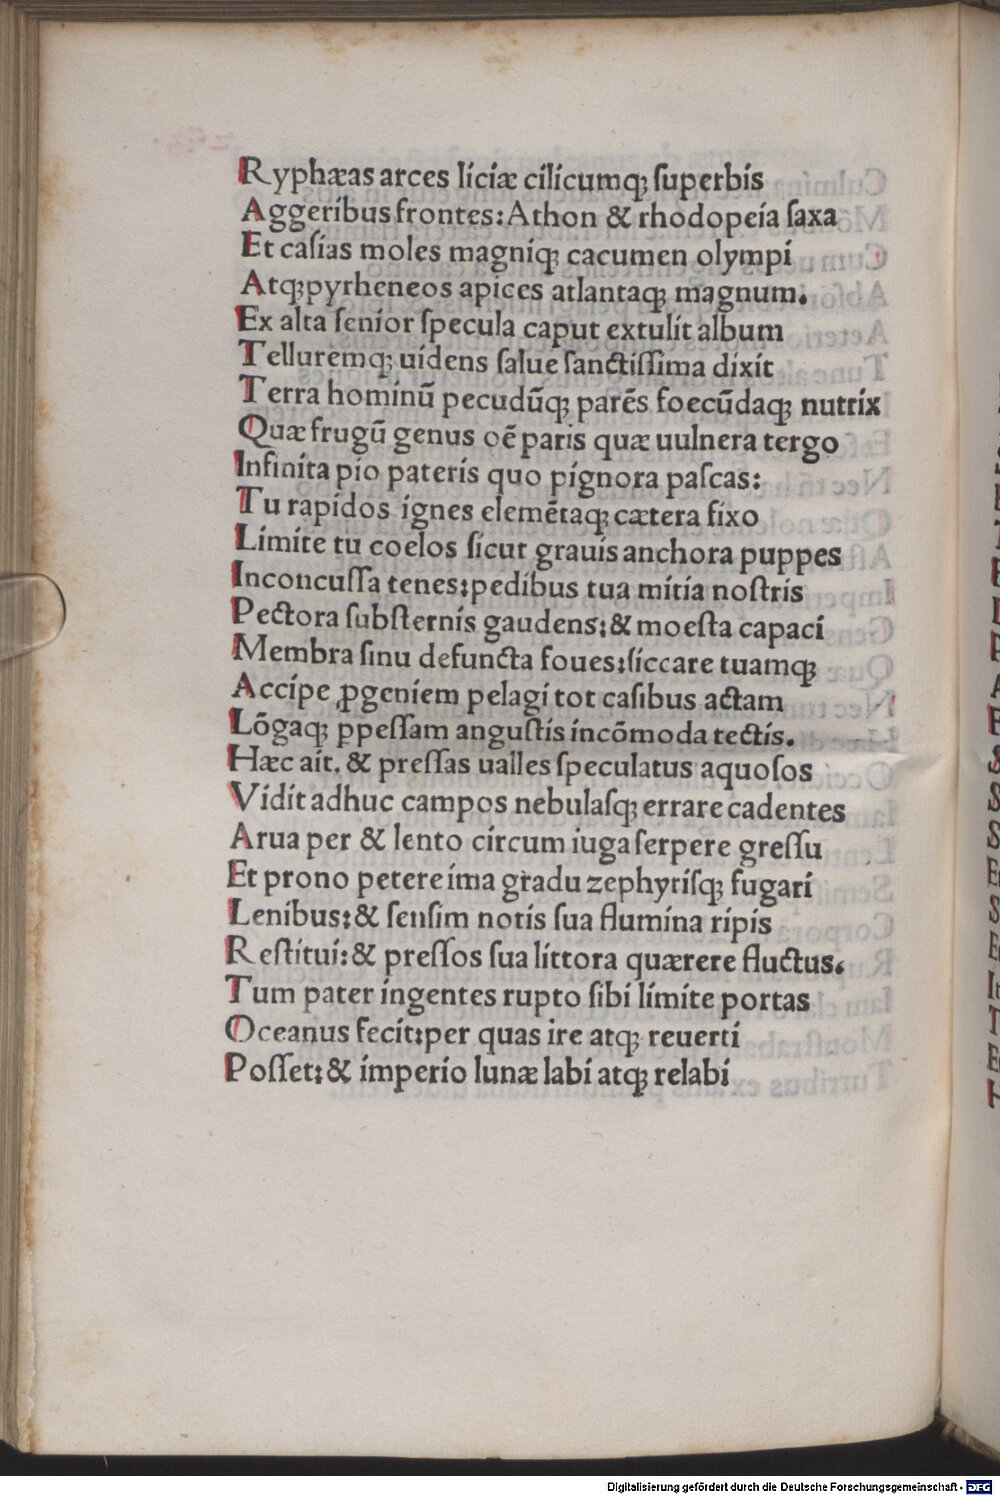 Ryphæas arces liciæ cilicumqꝫ ſuperbis
Aggeribus frontes: Athon & rhodopeia ſaxa
Et caſias moles magniqꝫ cacumen olympi
Atqꝫ pyrheneos apices atlantaqꝫ magnum.
Ex alta ſenior ſpecula caput extulit album
Telluremqꝫ uidens ſalue ſanctiſſima dixit
Terra hominū pecudūqꝫ parēs foecūdaqꝫ nutrix
Quæ frugū genus oē paris quæ uulnera tergo
Infinita pio pateris quo pignora paſcas:
Tu rapidos ignes elemētaqꝫ cætera fixo
Limite tu coelos ſicut grauis anchora puppes
Inconcuſſa tenes: pedibus tua mitia noſtris
Pectora ſubſternis gaudens: & moeſta capaci
Membra ſinu defuncta foues: ſiccare tuamqꝫ
Accipe ꝓgeniem pelagi tot caſibus actam
Lōgaqꝫ ꝑpeſſam anguſtis incōmoda tectis.
Hæc ait. & preſſas ualles ſpeculatus aquoſos
Vidit adhuc campos nebulaſqꝫ errare cadentes
Arua per & lento circum iuga ſerpere greſſu
Et prono petere ima gradu zephyriſqꝫ fugari
Lenibus: & ſenſim notis ſua flumina ripis
Reſtitui: & preſſos ſua littora quærere fluctus.
Tum pater ingentes rupto ſibi limite portas
Oceanus fecit: per quas ire atqꝫ reuerti
Poſſet: & imperio lunæ labi atqꝫ relabi
Digitalisierung gefördert durch die Deutsche Forschungsgemeinschaft - DFG